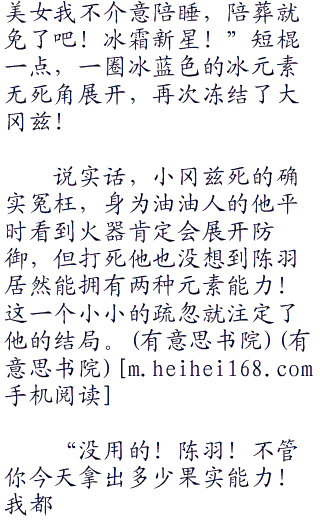 美女我不介意陪睡，陪葬就
免了吧！冰霜新星！”短棍
一点，一圈冰蓝色的冰元素
无死角展开，再次冻结了大
冈兹！
说实话，小冈兹死的确
实冤枉，身为油油人的他平
时看到火器肯定会展开防
御，但打死他也没想到陈羽
居然能拥有两种元素能力！
这一个小小的疏忽就注定了
他的结局。(有意思书院)(有
意思书院)[m.heihei168.com
手机阅读]
“没用的！陈羽！不管
你今天拿出多少果实能力！
我都